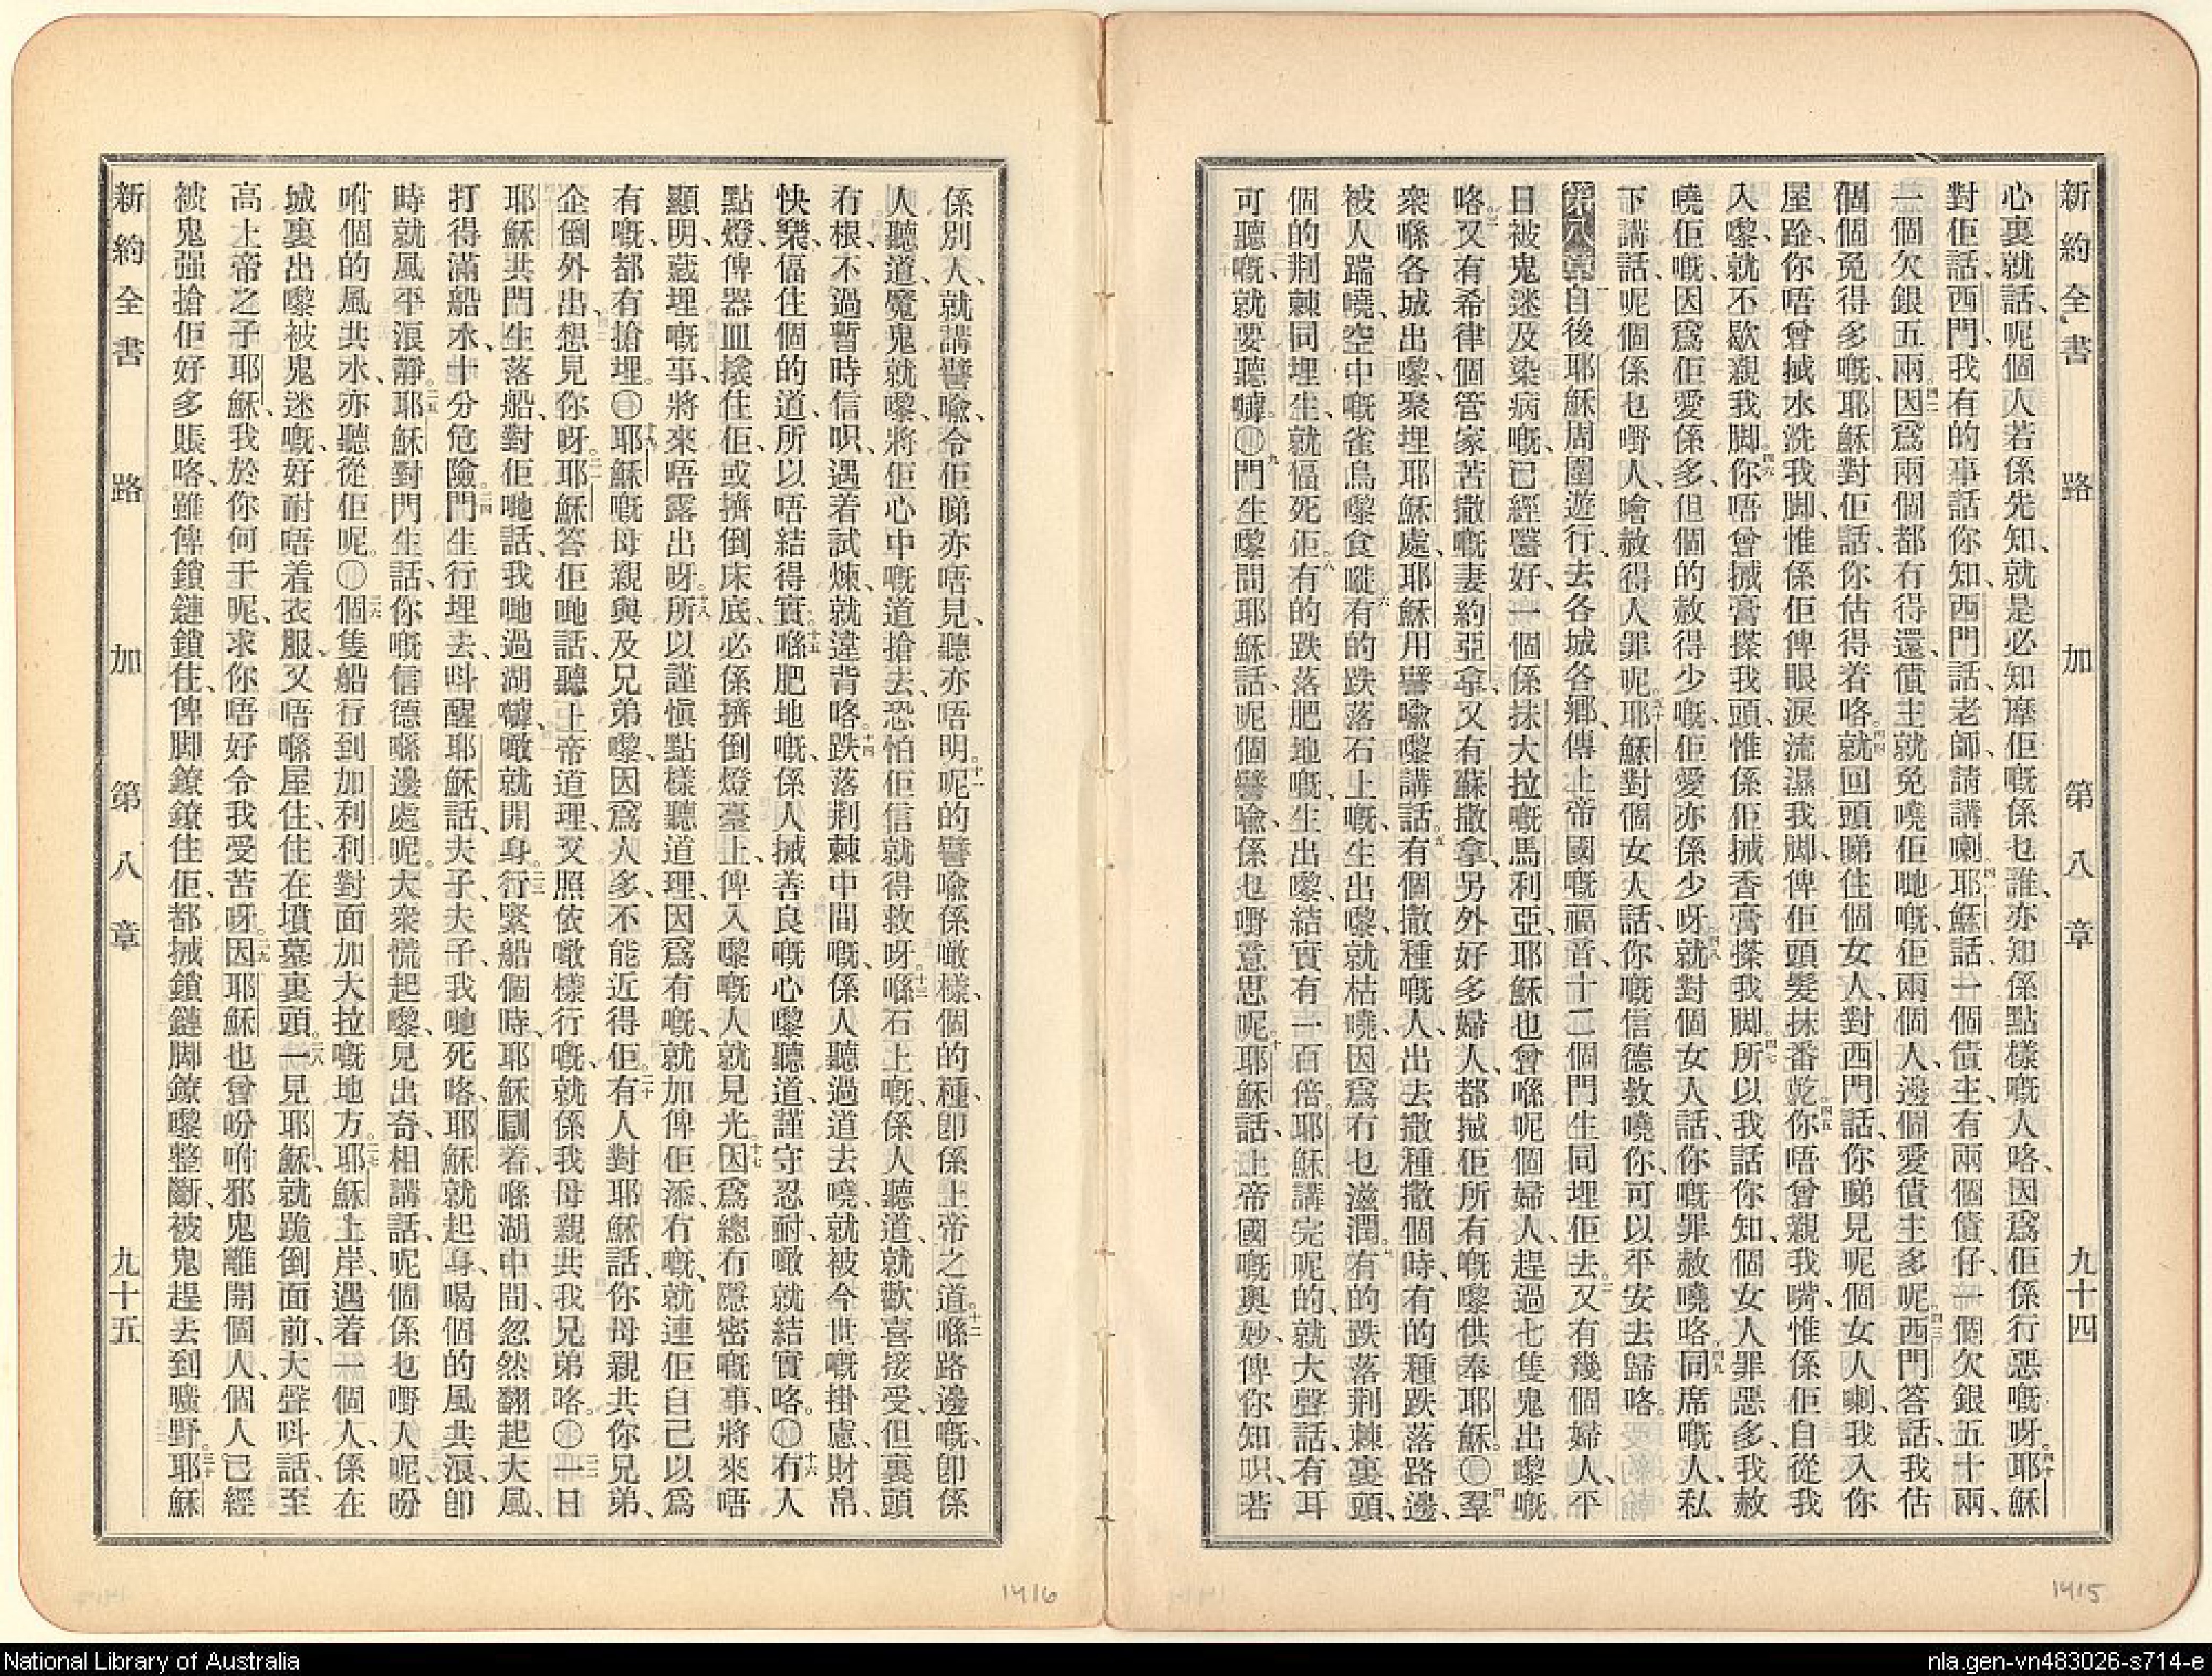 新約全書 路加 第八章 九十四
心裏就話、呢個人若係先知、就是必知摩佢嘅係乜誰、亦知係點樣嘅人咯、因爲佢係行惡嘅呀。四十耶穌
對佢話、西門、我有的事話你知、西門話、老師、請講喇。四一耶穌話、一個債主、有兩個債仔、一個欠銀五十兩、
一個欠銀五兩。四二因爲兩個都冇得還、債主就免嘵佢哋嘅、佢兩個人、邊個愛債主多呢。四三西門答話、我估
個個免得多嘅、耶穌對佢話、你估得着咯。四四就回頭睇住個女人、對西門話、你睇見呢個女人喇、我入你
屋跧、你唔曾搣水洗我脚、惟係佢俾眼淚流濕我脚、俾佢頭髮抹番乾。四五你唔曾親我嘴、惟係佢自從我
入嚟、就不歇親我脚。四六你唔曾搣膏搽我頭、惟係佢搣香膏搽我脚。四七所以我話你知、個女人罪惡多、我赦
嘵佢嘅、因爲佢愛係多、但個的赦得少嘅、佢愛亦係少呀。四八就對個女人話、你嘅罪赦嘵咯。四九同席嘅人、私
下講話、呢個係乜嘢人、噲赦得人罪呢。五十耶穌對個女人話、你嘅信德救嘵你、可以平安去歸咯。
第八章 一自後耶穌周圍遊行、去各城各鄉、傳上帝國嘅福音、十二個門生同埋佢去。二又有幾個婦人、平
日被鬼迷及染病嘅、已經醫好、一個係抹大拉嘅馬利亞、耶穌也曾喺呢個婦人、趕過七隻鬼出嚟嘅
咯。三又有希律個管家苦撒嘅妻約亞拿、又有蘇撒拿、另外好多婦人、都搣佢所有嘅嚟供奉耶穌。〇四羣
衆喺各城出嚟、聚埋耶穌處、耶穌用譬喩嚟講話。五有個撒種嘅人、出去撒種、撒個時、有的種跌落路邊、
被人踹嘵、空中嘅雀鳥嚟食嘥。六有的跌落石上嘅、生出嚟、就枯嘵、因爲冇乜滋潤。七有的跌落荆棘裏頭、
個的荆棘同埋生、就偪死佢。八有的跌落肥地嘅、生出嚟、結實有一百倍。耶穌講完呢的、就大聲話、有耳
可聽嘅、就要聽嚹。〇九門生嚟問耶穌話、呢個譬喩、係乜嘢意思呢。十耶穌話、上帝國嘅奧妙、俾你知呮、若
係別人、就講譬喩、令佢睇亦唔見、聽亦唔明。十一呢的譬喩係噉樣、個的種、卽係上帝之道。十二喺路邊嘅、卽係
人聽道、魔鬼就嚟、將佢心中嘅道搶去、恐怕佢信就得救呀。十三喺石上嘅、係人聽道、就歡喜接受、但裏頭
冇根、不過暫時信呮、遇着試煉、就違背咯。十四跌落荆棘中間嘅、係人聽過道去嘵、就被今世嘅掛慮、財帛、
快樂、偪住個的道、所以唔結得實。十五喺肥地嘅、係人搣善良嘅心嚟聽道、謹守忍耐、噉就結實咯。〇十六冇人
點燈、俾器皿揜住佢、或擠倒床底、必係擠倒燈臺上、俾入嚟嘅人就見光。十七因爲總冇隱密嘅事、將來唔
顯明、蔵埋嘅事、將來唔露出呀。十八所以謹愼點樣聽道理、因爲有嘅、就加俾佢添、冇嘅、就連佢自己以爲
有嘅、都有搶埋。〇十九耶穌嘅母親與及兄弟嚟、因爲人多、不能近得佢。二十有人對耶穌話、你母親共你兄弟、
企倒外出、想見你呀。二一耶穌答佢哋話、聽上帝道理、又照依噉樣行嘅、就係我母親共我兄弟咯。〇二二一日
耶穌共門生落船、對佢哋話、我哋過湖嚹、噉就開身。二三行緊船個時、耶穌瞓着、喺湖中間、忽然翻起大風、
打得滿船水、十分危險。二四門生行埋去、呌醒耶穌話、夫子、夫子、我哋死咯、耶穌就起身、喝個的風共浪、卽
時就風平浪靜。二五耶穌對門生話、你嘅信德喺邊處呢。大衆慌起嚟、見出奇、相講話、呢個係乜嘢人呢、吩
咐個的風共水、亦聽從佢呢。〇二六個隻船行到加利利對面加大拉嘅地方。二七耶穌上岸、遇着一個人、係在
城裏出嚟、被鬼迷嘅、好耐唔着衣服、又唔喺屋住、住在墳墓裏頭。二八一見耶穌、就跪倒面前、大聲呌話、至
高上帝之子耶穌、我於你何干呢、求你唔好令我受苦呀。二九因耶穌也曾吩咐邪鬼離開個人、個人已經
被鬼强搶佢好多賬咯、雖俾鎖鏈鎖住、俾脚鐐鐐住佢、都搣鎖鏈脚鐐嚟整斷、被鬼趕去到曠野。三十耶穌
新約全書 路加 第八章 九十五
1416
1415
National Library of Australia
nla.gen-vn483026-s714-e